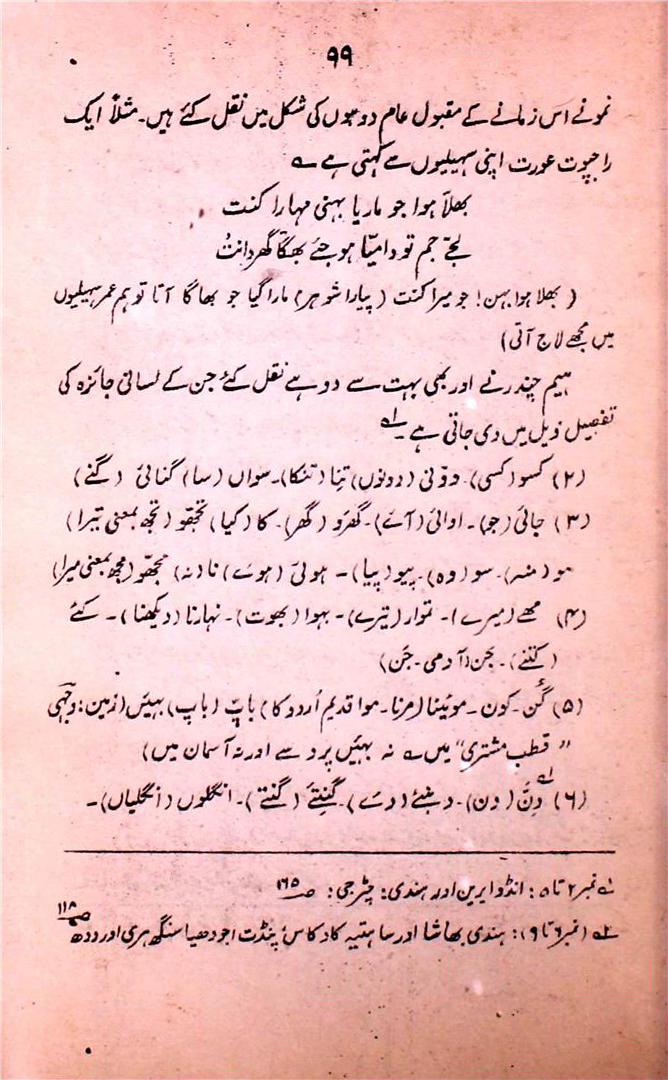 ۹۹
نمونے اس زمانے کے مقبول عام دوہوں کی شکل میں نقل کئے ہیں۔ مثلاً ایک
راجپوت عورت اپنی سہیلیوں سے کہتی ہے ؎
بھلاّ ہوا جو ماریا بہنی مہارا کنت
لجّے جم تو دامیّا ہو جئے بھگّا گھر دانتُ
( بھلا ہوا بہن! جو میرا کنت (پیارا شوہر) مارا گیا جو بھاگا آتا تو ہم عمر سہیلیوں
میں مجھے لاج آتی)
ہیم چندر نے اور بھی بہت سے دوہے نقل کئے جن کے لسانی جائزہ کی
تفصیل ذیل میں دی جاتی ہے۔ ؎۱
(۲) کسو (کسی)۔ دوّنی (دونوں) تِنا (تنکا)۔ سواں (سا) گنائی (گنے)
(۳) جائی (جو)۔ اوائی (آئے)۔ گھرَو (گھر)۔ کا (کیا) تجھّو (تجھ بمعنی تیرا)
مو (منہ)۔ سو (وہ)۔ پیو (پیا)۔ ہوئی (ہوے) نا (نہ) مجھّو (مجھ بمعنی میرا)
(۴) مجھے (میرے)۔ تموار (تیرے)۔ بہوا (بھوت)۔ نہارنا (دیکھنا)۔ کئے
(کتنے)۔ جَن (آدمی۔ جَن)
(۵) گُن۔ کون۔ موئینا (مرنا۔ موا قدیم اُردو کا) باپّ (باپ) بہیئں (زمین: وجہی
"قطب مشتری" میں ؎ نہ بہیئں پر دسے اور نہ آسمان میں)
(۶) ؎۱ دِنَّ (دن)۔ دہئے (دے)۔ گِنتِئے (گنتے)۔ انگلوں (انگلیاں)۔
؎۱ نمبر ۲ تا ۵: انڈو ایرین اور ہندی: چٹرجی: صـ ۱۶۵
؎۲ (نمبر ۶ تا ۹): ہندی بھاشا اور ساہتیہ کا دکاس پنڈت اجودھیا سنگھ ہری اودھ صـ ۱۱۸